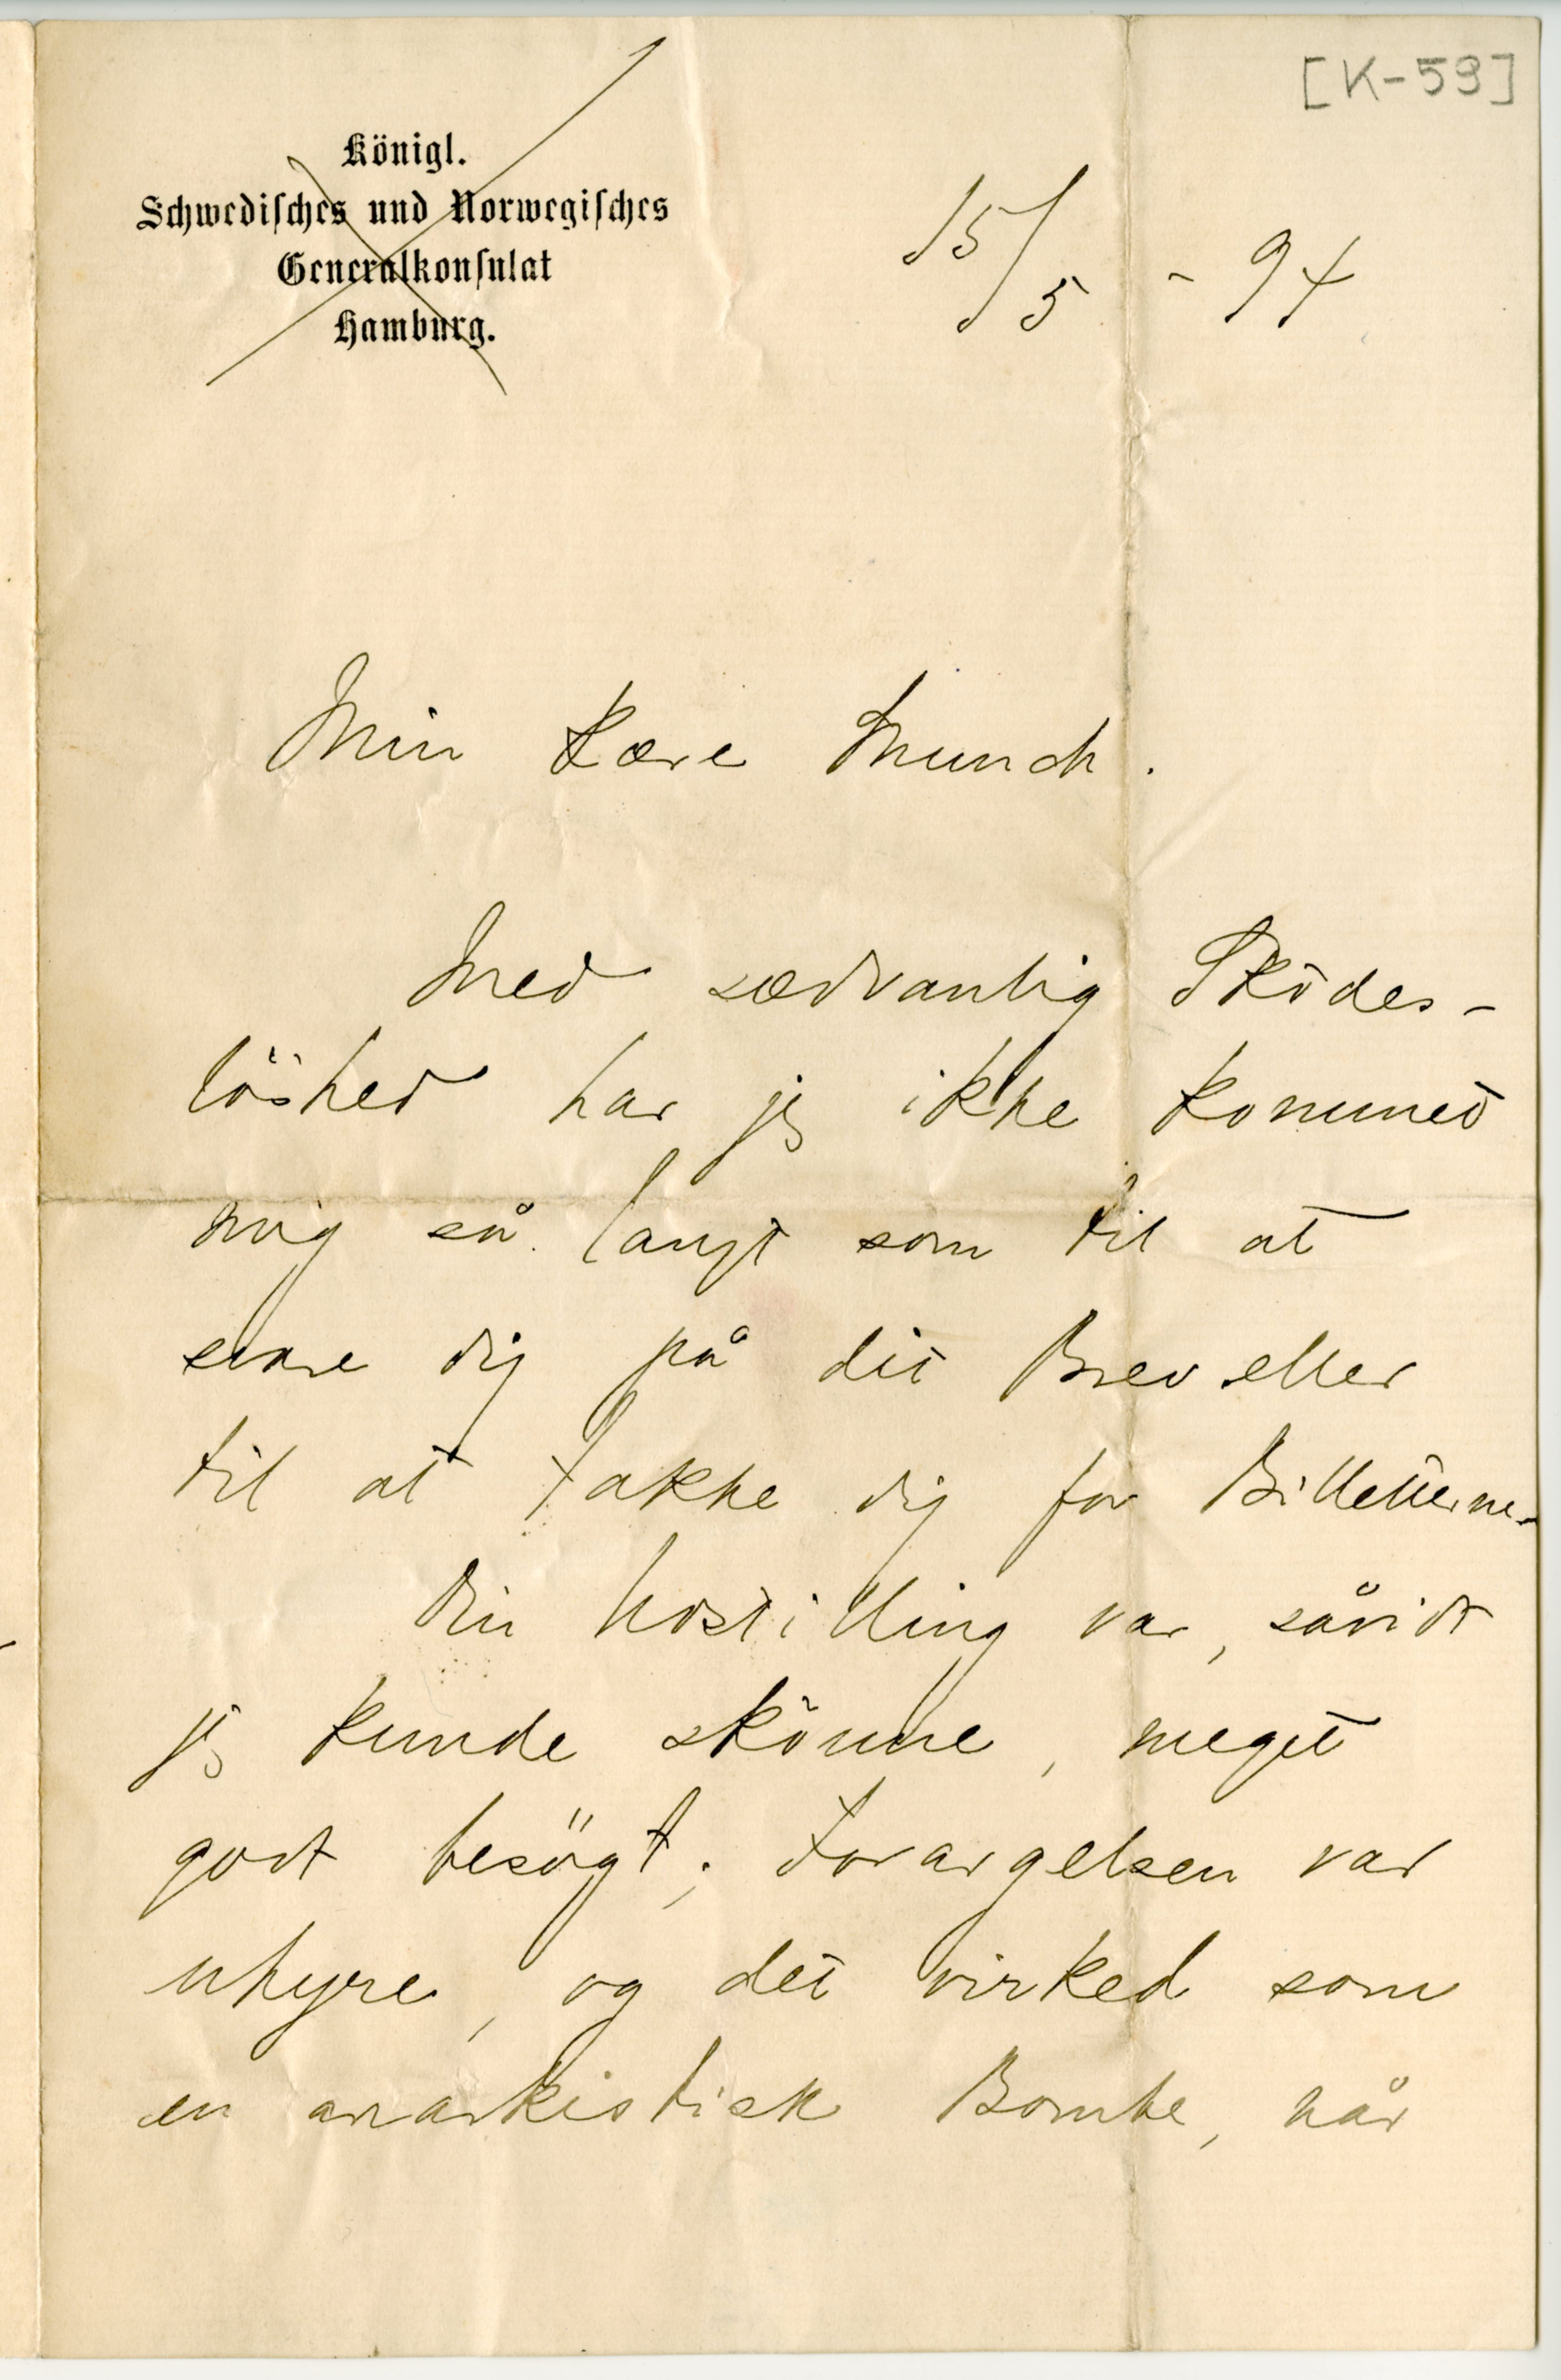 [K-59]
Königl.
Schwedisches und Norwegisches
Generalkonsulat
Hamburg.
15/5 - 94
Min kære Munch.
Med sædvanlig Skødes-
løshed har jeg ikke kommed
mig så langt som til at
svare dig på dit Brev eller
til at takke dig for Billetterne.
Din Udstilling var, såvidt
jeg kunde skönne, meget
godt besögt; Forargelsen var
uhyre, og det virked som
en anarkistisk Bombe, når